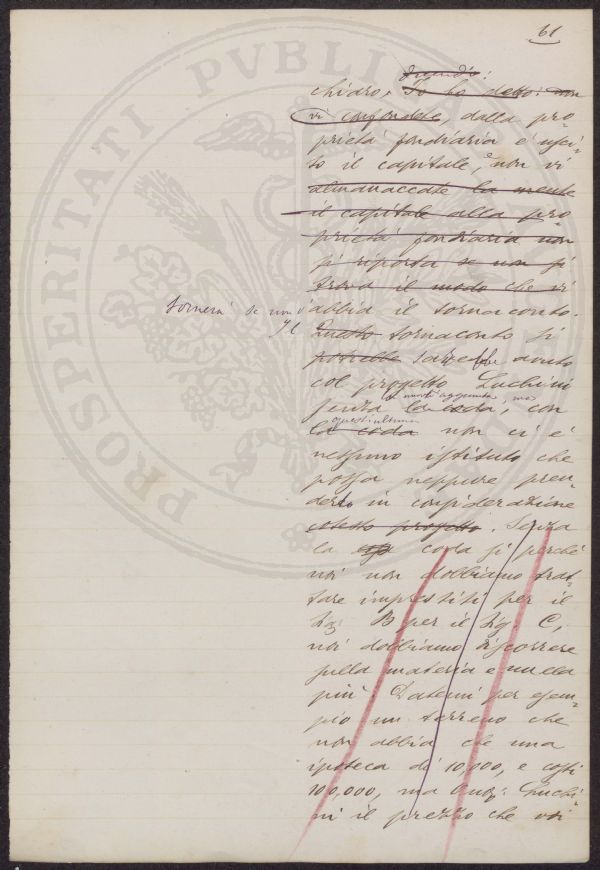 61
dicendo:
chidro. Io ho detto: non
vi confondete, dalla pro-
prietà fondiaria è usci-
to il capitale, e non vi
almanaccate la mente
il capitale alla pro-
prietà fondiaria non
si riporta se non si
trova il modo che vi
tornerà se non v'
abbia il tornaconto.
Il
Questo tornaconto si
potrebbe sarebbe avuto
col progetto Luchini
senza la coda, con
molte aggiunte, ma
quest'ultima
la coda non ci è
nessuno istituto che
possa neppure pren-
derlo in considerazione
cotesto progetto. Senza
la coda si perchè
noi non dobbiamo trat-
tare imprestiti per il
Sig. B per il Sig. C,
noi dobbiamo discorrere
sulla materia e nulla
più. Datemi per esem-
pio un terreno che
non abbia che una
ipoteca di 10,000, e costi
100,000, ma Onor: Luchi-
ni il prezzo che voi
PROSPERITATI PVBLICAE